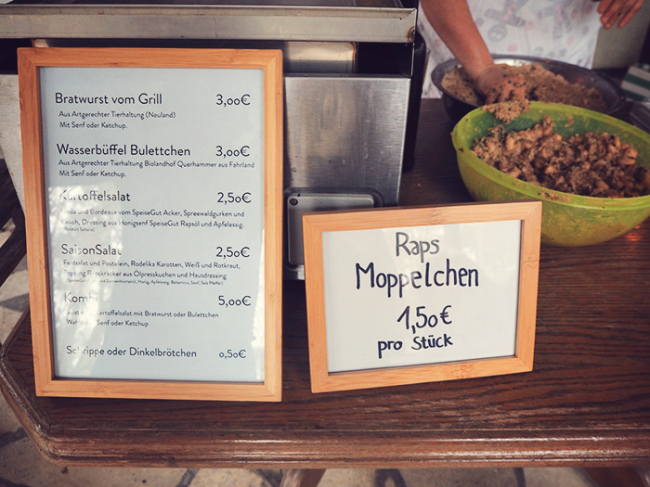 Bratwurst vom Grill 3,00€
Aus Artgerechter Tierhaltung (Neuland)
Mit Senf oder Ketchup.
Wasserbüffel Bulettchen 3,00€
Aus Artgerechter Tierhaltung Biolandhof Querhammer aus Fahrland
Mit Senf oder Ketchup.
Kartoffelsalat 2,50€
und Bordeaux vom SpeiseGut Acker, Spreewaldgurken und
Lauch, Dressing aus Honigsenf SpeiseGut Rapsöl und Apfelessig.
SaisonSalat 2,50€
Feldsalat und Postalein, Rodelika Karotten, Weiß und Rotkraut,
Topping Rapskräcker aus Ölpresskuchen und Hausdressing
Kombi 5,00€
Kartoffelsalat mit Bratwurst oder Bulettchen
Senf oder Ketchup
Schrippe oder Dinkelbrötchen 0,50€
Raps
Moppelchen
1,50€
pro Stück